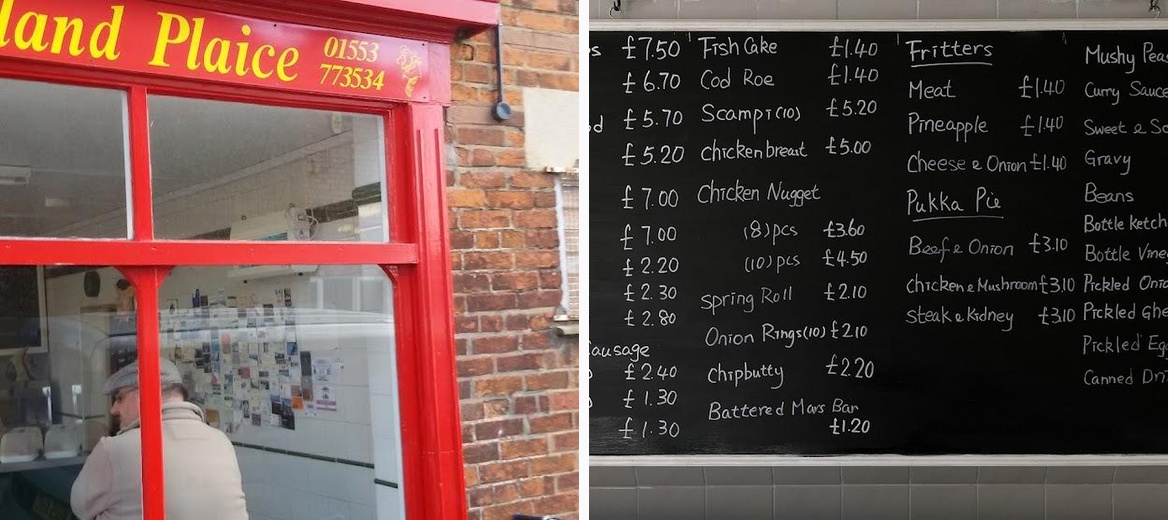 land Plaice
01553
773534
£7.50
£6.70
£5.70
£5.20
£7.00
£7.00
£2.20
£2.30
£2.80
£2.40
£1.30
£1.30
Fish Cake £1.40
Cod Roe £1.40
Scampi (10) £5.20
chicken breast £5.00
Chicken Nugget
(8) pcs £3.60
(10) pcs £4.50
Spring Roll £2.10
Onion Rings (10) £2.10
Chipbutty £2.20
Battered Mars Bar
£1.20
Fritters
Meat £1.40
Pineapple £1.40
Cheese & Onion £1.40
Pukka Pie
Beef & Onion £3.10
chicken & Mushroom £3.10
Steak & Kidney £3.10
Mushy Peas
Curry Sauce
Sweet &
Gravy
Beans
Bottle
Bottle
Pickled
Pickled
Pickled
Canned